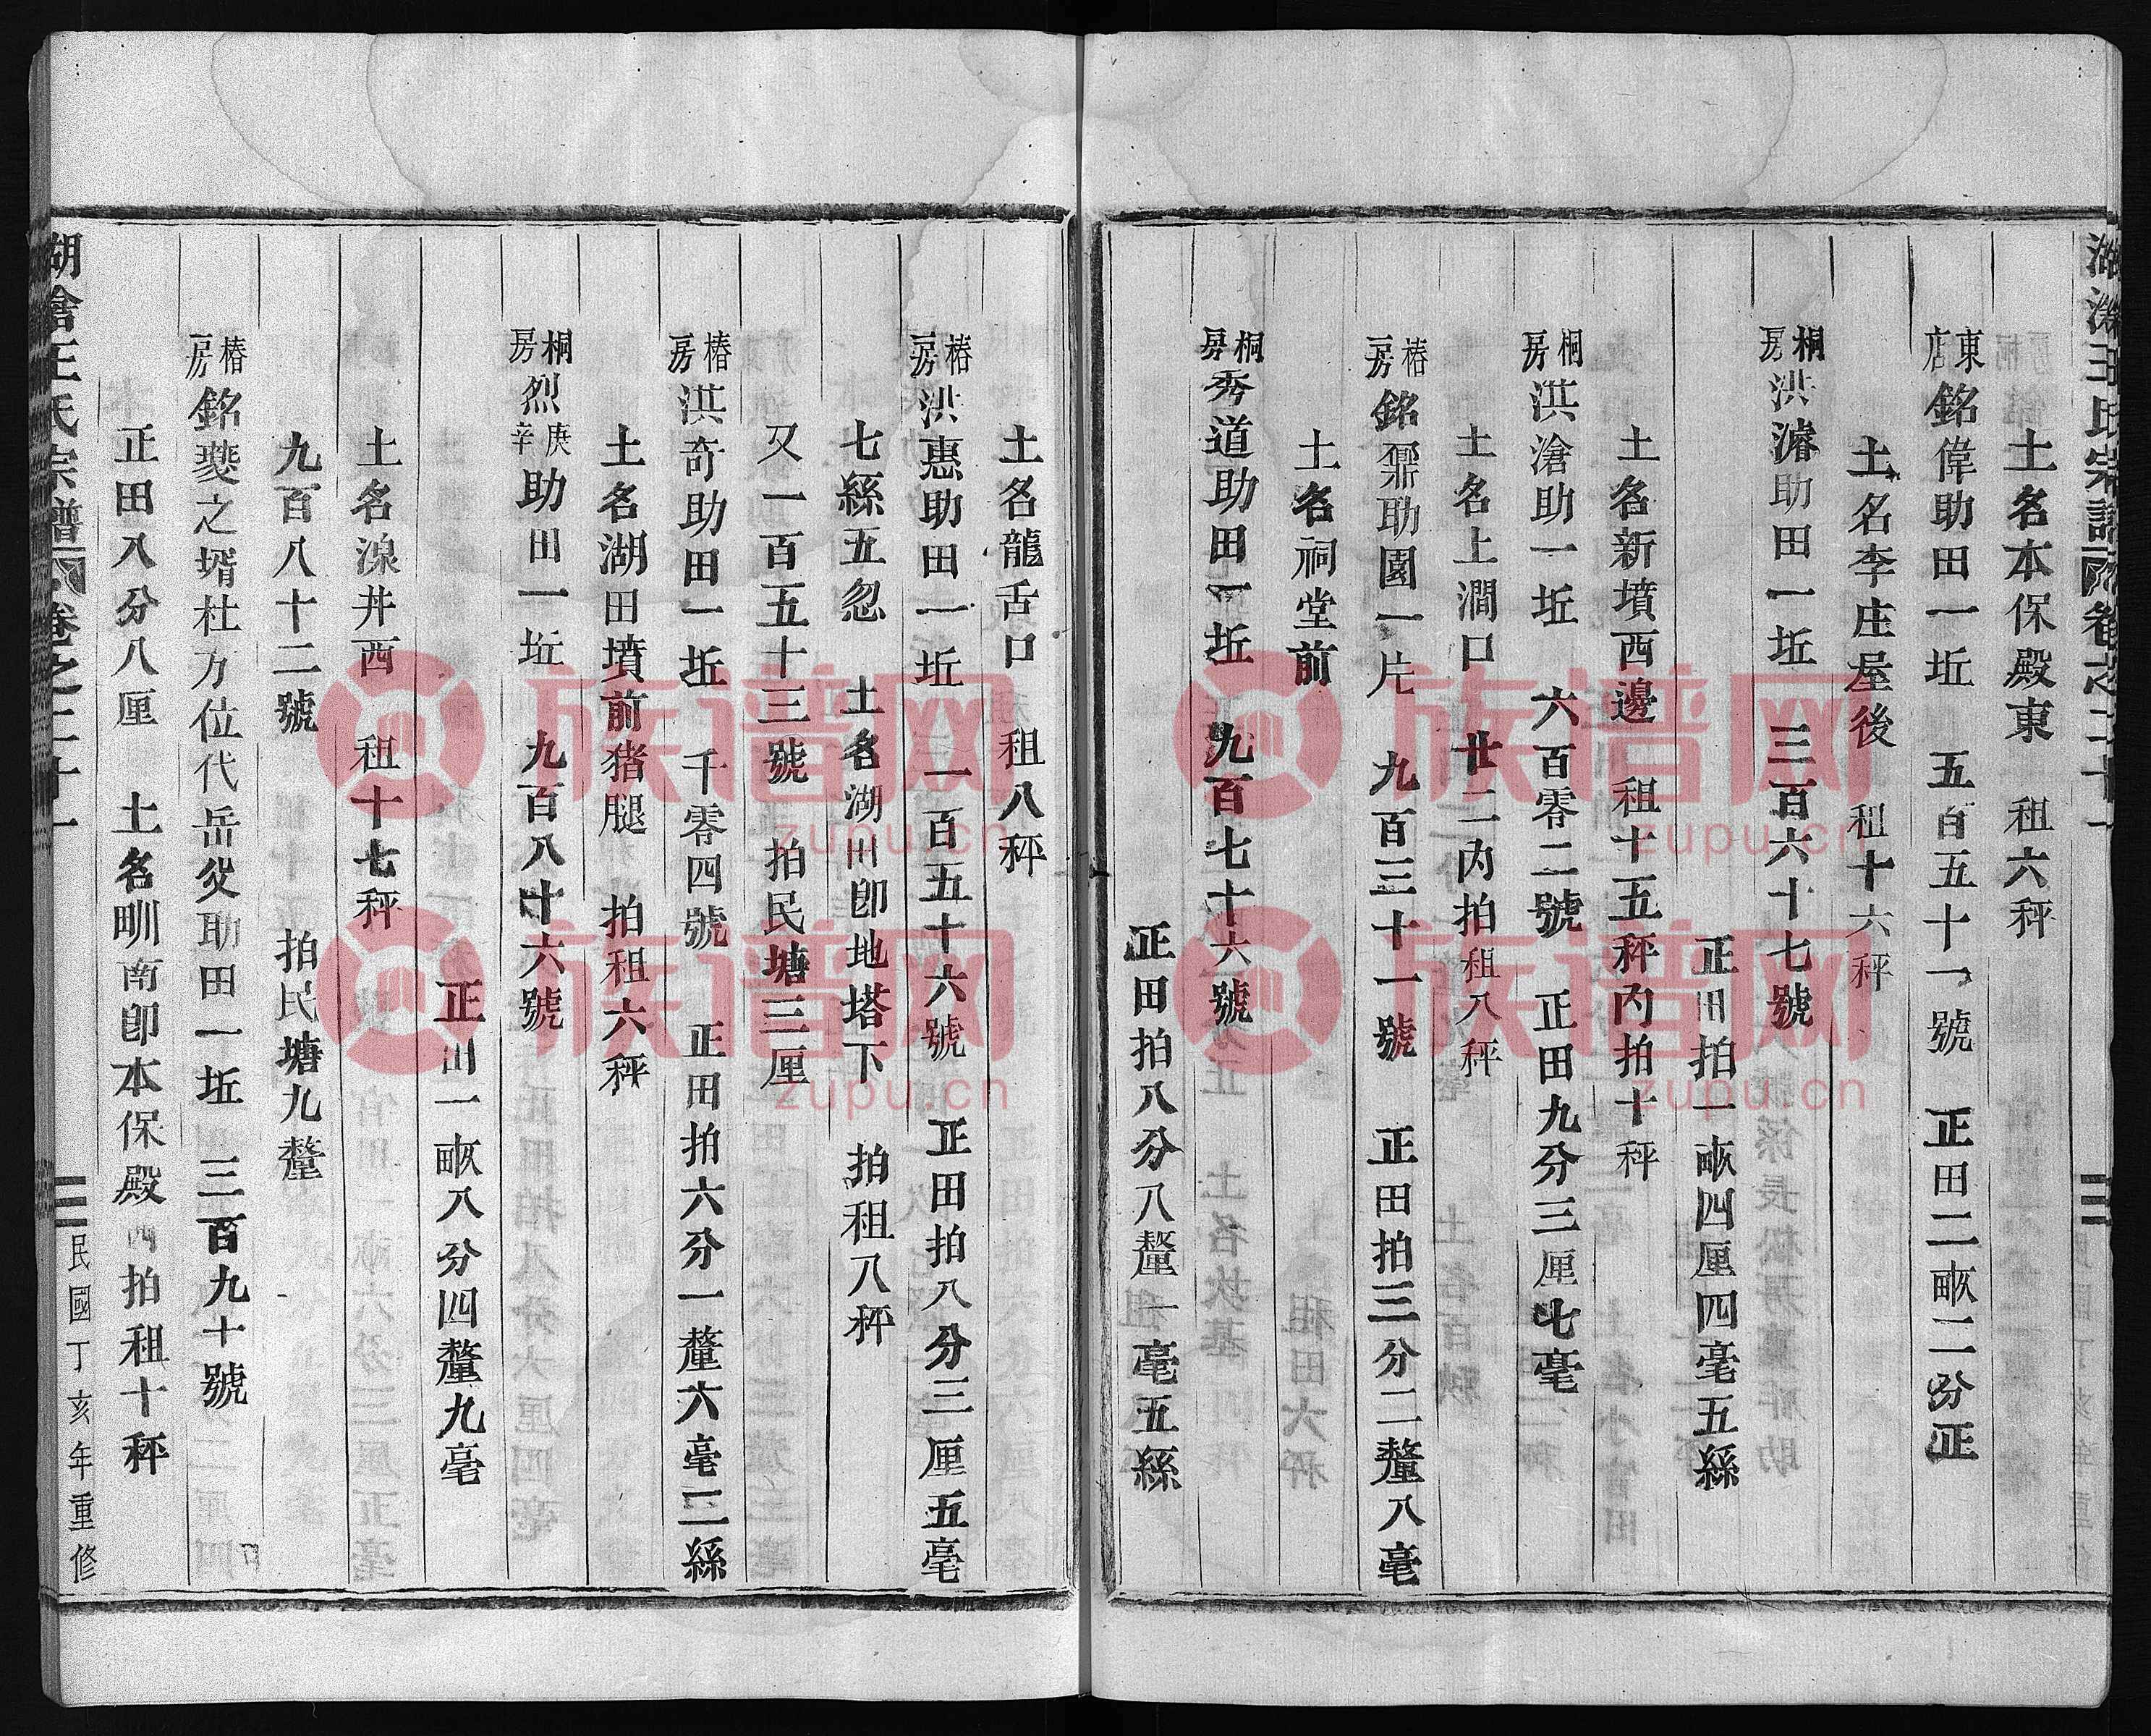 土名本保殿東　租六秤
東店銘偉助田一坵　五百五十一號　正田二畝二分正
土名李庄屋後　租十六秤
桐房洪濬助田一坵　三百六十七號
正田拍一畝四厘四毫五絲
土名新墳西邊　租十五秤內拍十秤
桐房洪滄助一坵　六百零二號　正田九分三厘七毫
土名上澗口　廿二內拍租八秤
椿房銘鼐助園一片　九百三十一號　正田拍三分二釐八毫
土名祠堂前
桐房秀道助田一坵　九百七十六號
正田拍八分八釐一毫五絲
土名龍舌口　租八秤
椿房洪惠助田一坵　一百五十六號　正田拍八分三厘五毫
七絲五忽　土名湖田卽地塔下　拍租八秤
又一百五十三號　拍民塘三厘
椿房洪奇助田一坵　千零四號　正田拍六分一釐六毫三絲
土名湖田墳前猪腿　拍租六秤
桐房烈庚辛助田一坵　九百八十六號
正田一畝八分四釐九毫
土名湶井西　租十七秤
九百八十二號　拍民塘九釐
椿房銘夔之壻杜万位代岳父助田一坵　三百九十號
正田八分八厘　土名甽南卽本保殿西拍租十秤
王氏宗譜　卷之二十一　三　民國丁亥年重修
族谱网
zupu.cn
族谱网
zupu.cn
族谱网
zupu.cn
族谱网
zupu.cn